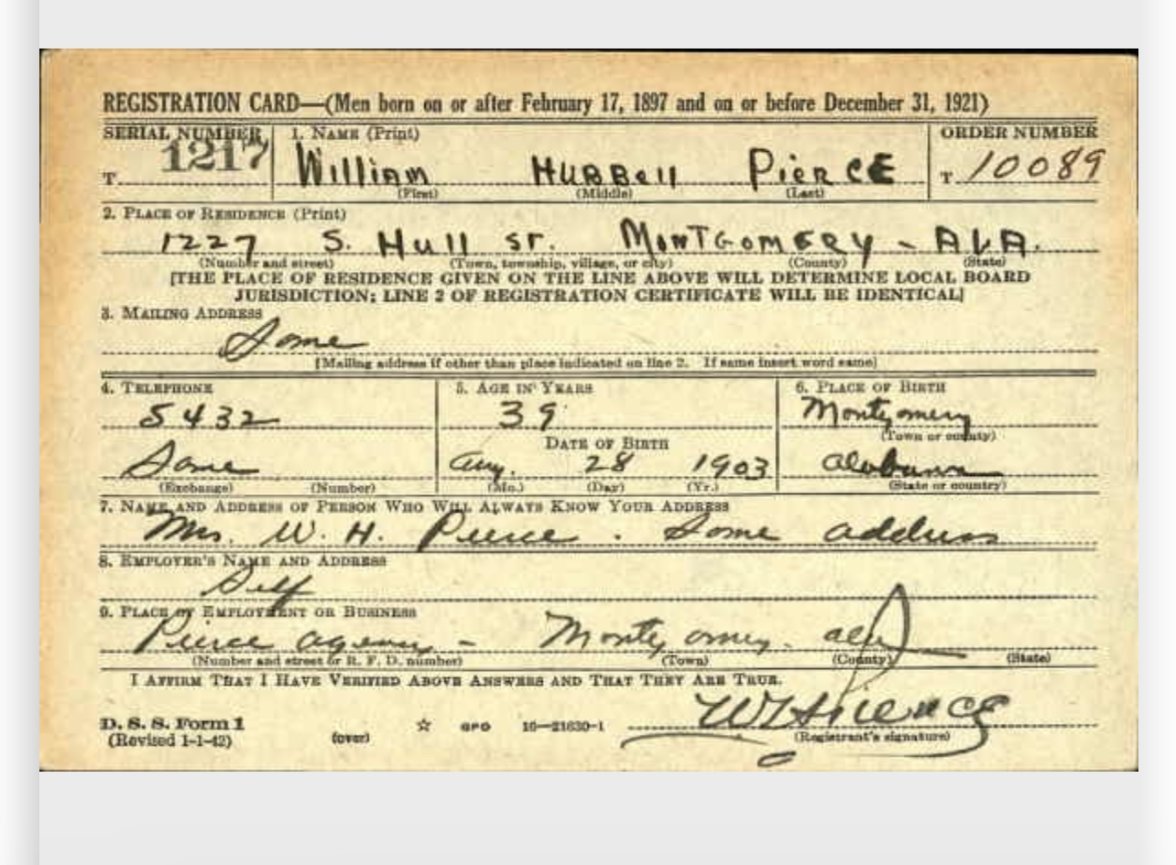 REGISTRATION CARD—(Men born on or after February 17, 1897 and on or before December 31, 1921)
SERIAL NUMBER 1. NAME (Print) ORDER NUMBER
T 1217 William HUBBell PierCE T 10089
(First) (Middle) (Last)
2. PLACE OF RESIDENCE (Print)
1227 S. Hull ST. MONTGOMERY - ALA.
(Number and street) (Town, township, village, or city) (County) (State)
[THE PLACE OF RESIDENCE GIVEN ON THE LINE ABOVE WILL DETERMINE LOCAL BOARD
JURISDICTION; LINE 2 OF REGISTRATION CERTIFICATE WILL BE IDENTICAL]
3. MAILING ADDRESS
Same
[Mailing address if other than place indicated on line 2. If same insert word same]
4. TELEPHONE 5. AGE IN YEARS 6. PLACE OF BIRTH
5432 39 Montgomery
DATE OF BIRTH (Town or county)
Same Aug. 28 1903 Alabama
(Exchange) (Number) (Mo.) (Day) (Yr.) (State or country)
7. NAME AND ADDRESS OF PERSON WHO WILL ALWAYS KNOW YOUR ADDRESS
Mrs. W. H. Pierce. Same address
8. EMPLOYER'S NAME AND ADDRESS
Self
9. PLACE OF EMPLOYMENT OR BUSINESS
Pierce agency - Montgomery. ala
(Number and street or R. F. D. number) (Town) (County) (State)
I AFFIRM THAT I HAVE VERIFIED ABOVE ANSWERS AND THAT THEY ARE TRUE.
WHPierce
D. S. S. Form 1 ☆ GPO 16—21630-1 (Registrant's signature)
(Revised 1-1-42) (over)